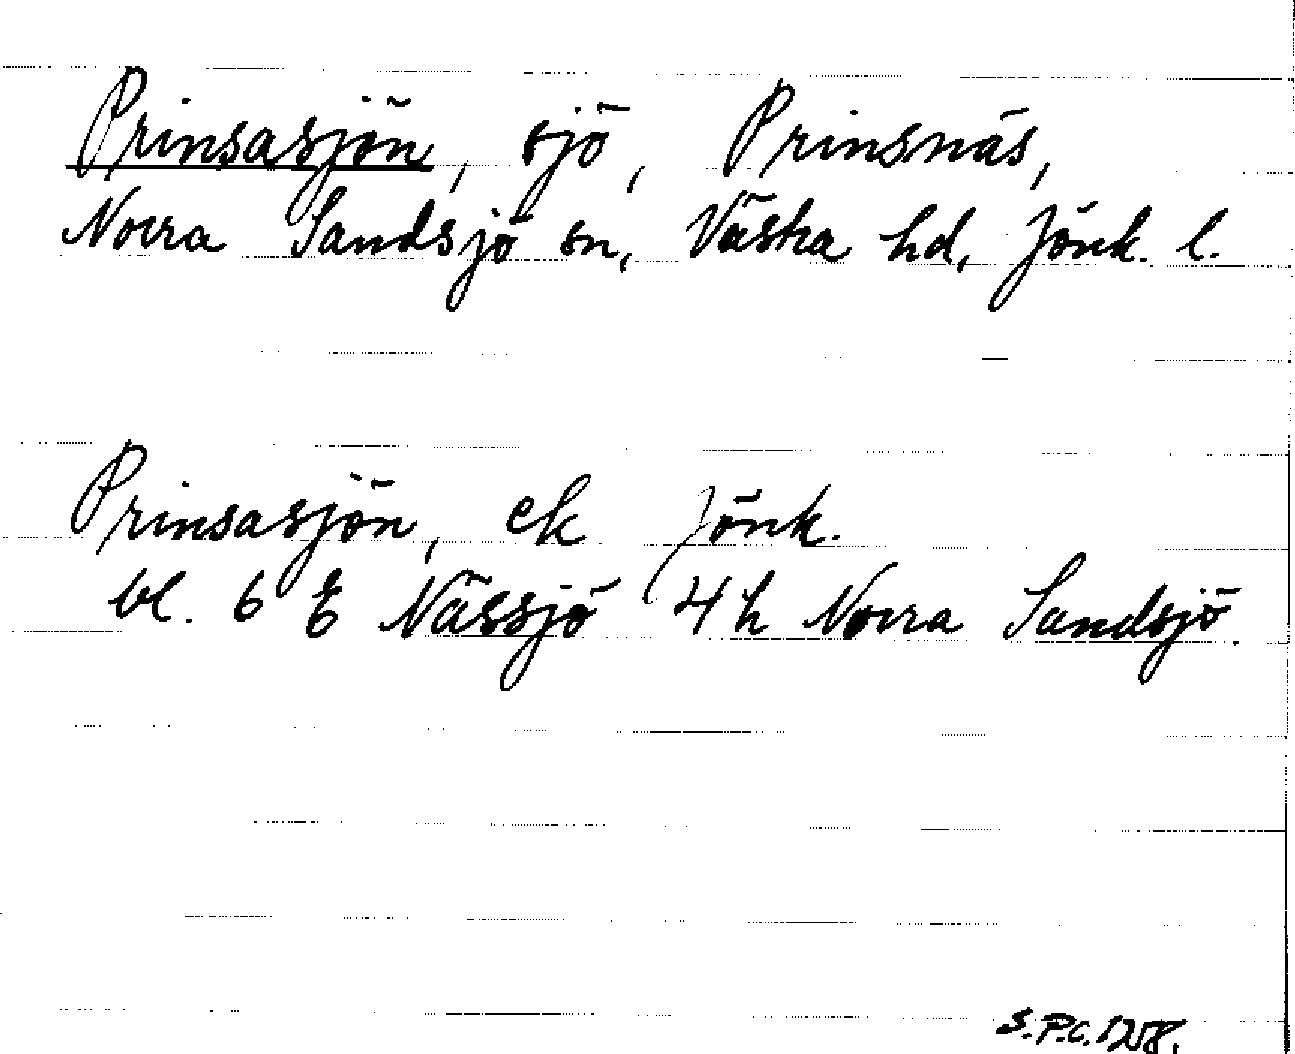 Prinsasjön, sjö, Prinsnäs,
Norra Sandsjö sn, Västra hd, Jönk. l.
Prinsasjön, ek Jönk.
bl. 6 E Nässjö 4h Norra Sandsjö.
S.P.C.